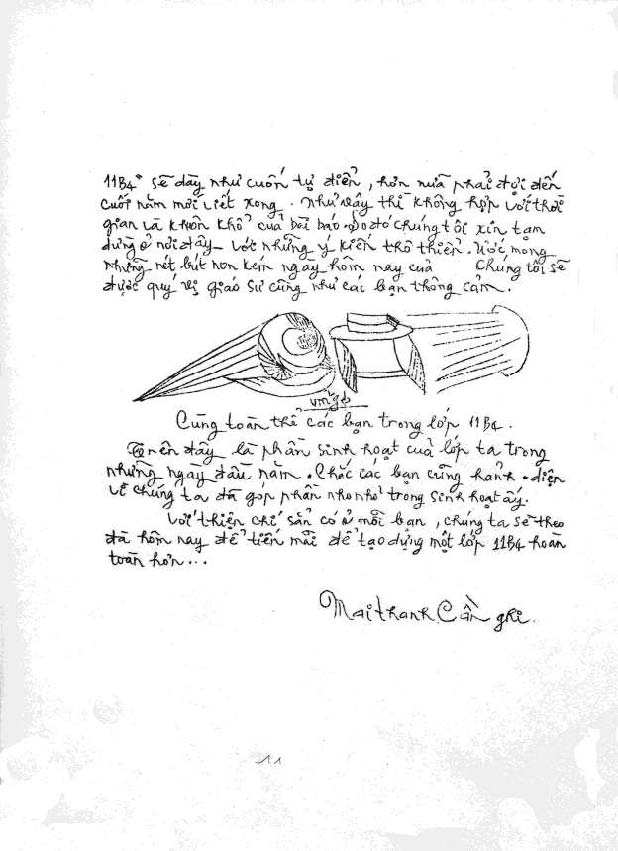 11B4" sẽ dày như cuốn tự điển, hơn nữa phải đợi đến
cuối năm mới viết xong. Như vậy thì không hợp với thời
gian và khuôn khổ của bài báo. Do đó chúng tôi xin tạm
dừng ở nơi đây - với những ý kiến thô thiển. Ước mong
những nét bút non kém ngày hôm nay của Chúng tôi sẽ
được quý vị giáo sư cũng như các bạn thông cảm.
Cùng toàn thể các bạn trong lớp 11B4.
Trên đây là phần sinh hoạt của lớp ta trong
những ngày đầu năm. Chắc các bạn cũng hãnh - diện
vì chúng ta đã góp phần nho nhỏ trong sinh hoạt ấy.
Với thiện chí sẵn có ở mỗi bạn, chúng ta sẽ theo
đà hôm nay để tiến mãi để tạo dựng một lớp 11B4 hoàn
toàn hơn...
Mai thanh Cần ghi.
11